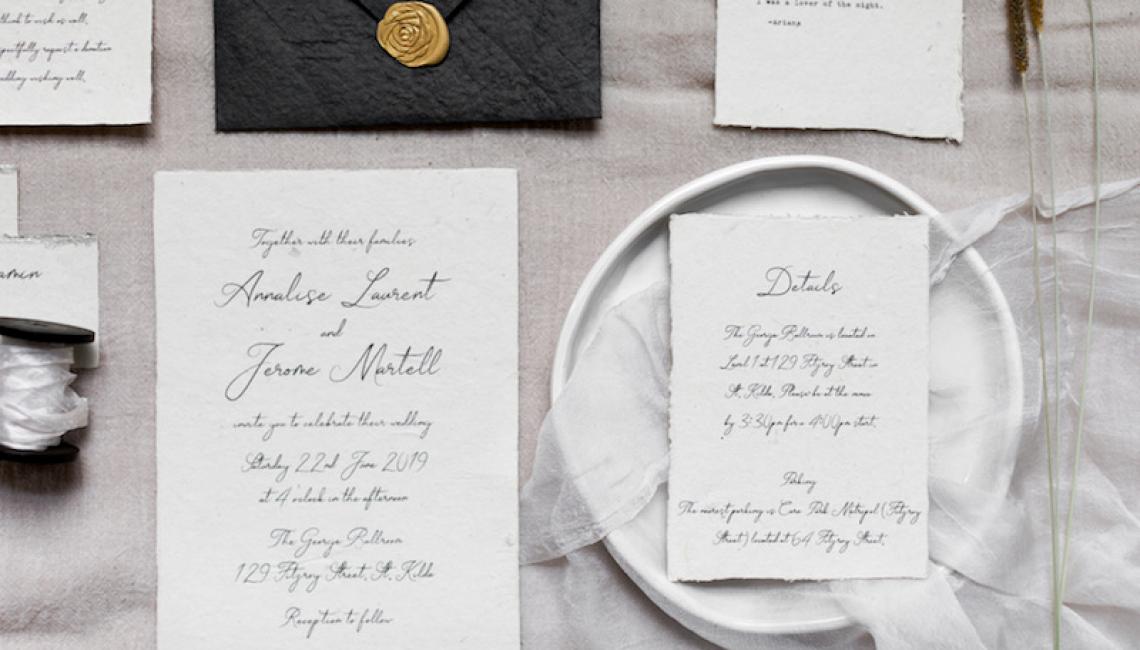 think to wish us well,
request a donation
wishing well.
I was a lover of the night.
-ariana
amin
Together with their families
Annalise Laurent
and
Jerome Martell
invite you to celebrate their wedding
Saturday 22nd June 2019
at 4 o'clock in the afternoon
The George Ballroom
129 Fitzroy Street, St. Kilda
Reception to follow
Details
The George Ballroom is located on
Level 1 at 129 Fitzroy Street in
St. Kilda. Please be at the venue
by 3:30pm for a 4:00pm start.
Parking
The nearest parking is Care Park Metropol (Fitzroy
Street) located at 64 Fitzroy Street.